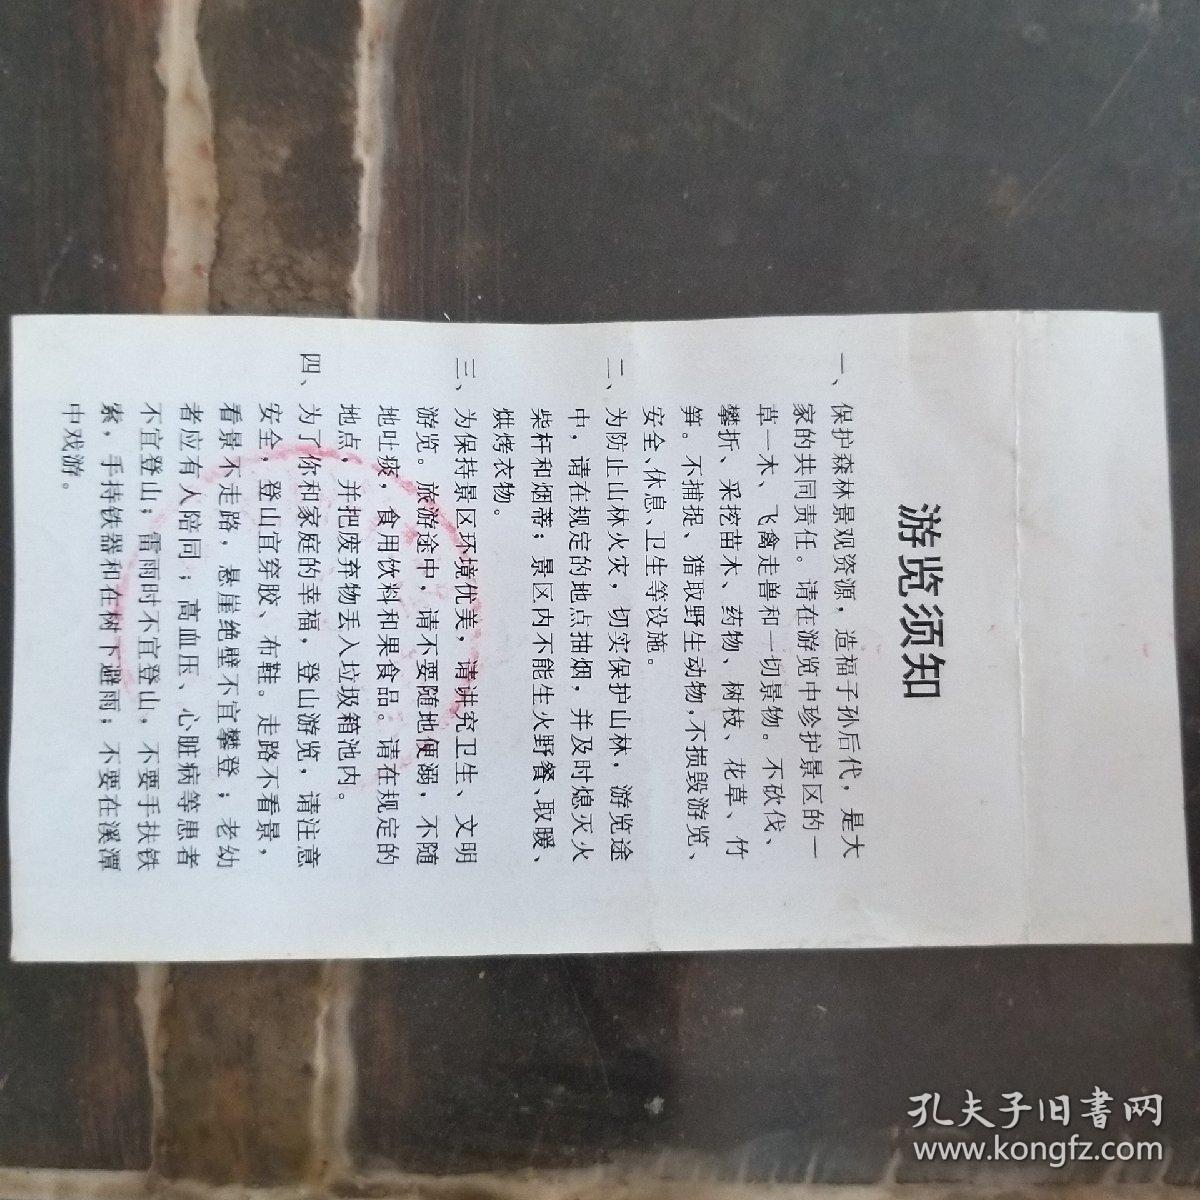 游览须知
一、保护森林景观资源，造福子孙后代，是大
家的共同责任。请在游览中珍护景区的一
草一木、飞禽走兽和一切景物。不砍伐、
攀折、采挖苗木、药物、树枝、花草、竹
笋。不捕捉、猎取野生动物，不损毁游览、
安全、休息、卫生等设施。
二、为防止山林火灾，切实保护山林，游览途
中，请在规定的地点抽烟，并及时熄灭火
柴杆和烟蒂；景区内不能生火野餐、取暖、
烘烤衣物。
三、为保持景区环境优美，请讲究卫生、文明
游览。旅游途中，请不要随地便溺，不随
地吐痰，食用饮料和果食品。请在规定的
地点，并把废弃物丢入垃圾箱池内。
四、为了你和家庭的幸福，登山游览，请注意
安全，登山宜穿胶、布鞋。走路不看景，
看景不走路，悬崖绝壁不宜攀登；老幼
者应有人陪同；高血压、心脏病等患者
不宜登山；雷雨时不宜登山，不要手扶铁
索，手持铁器和在树下避雨；不要在溪潭
中戏游。
孔夫子旧书网
www.kongfz.com